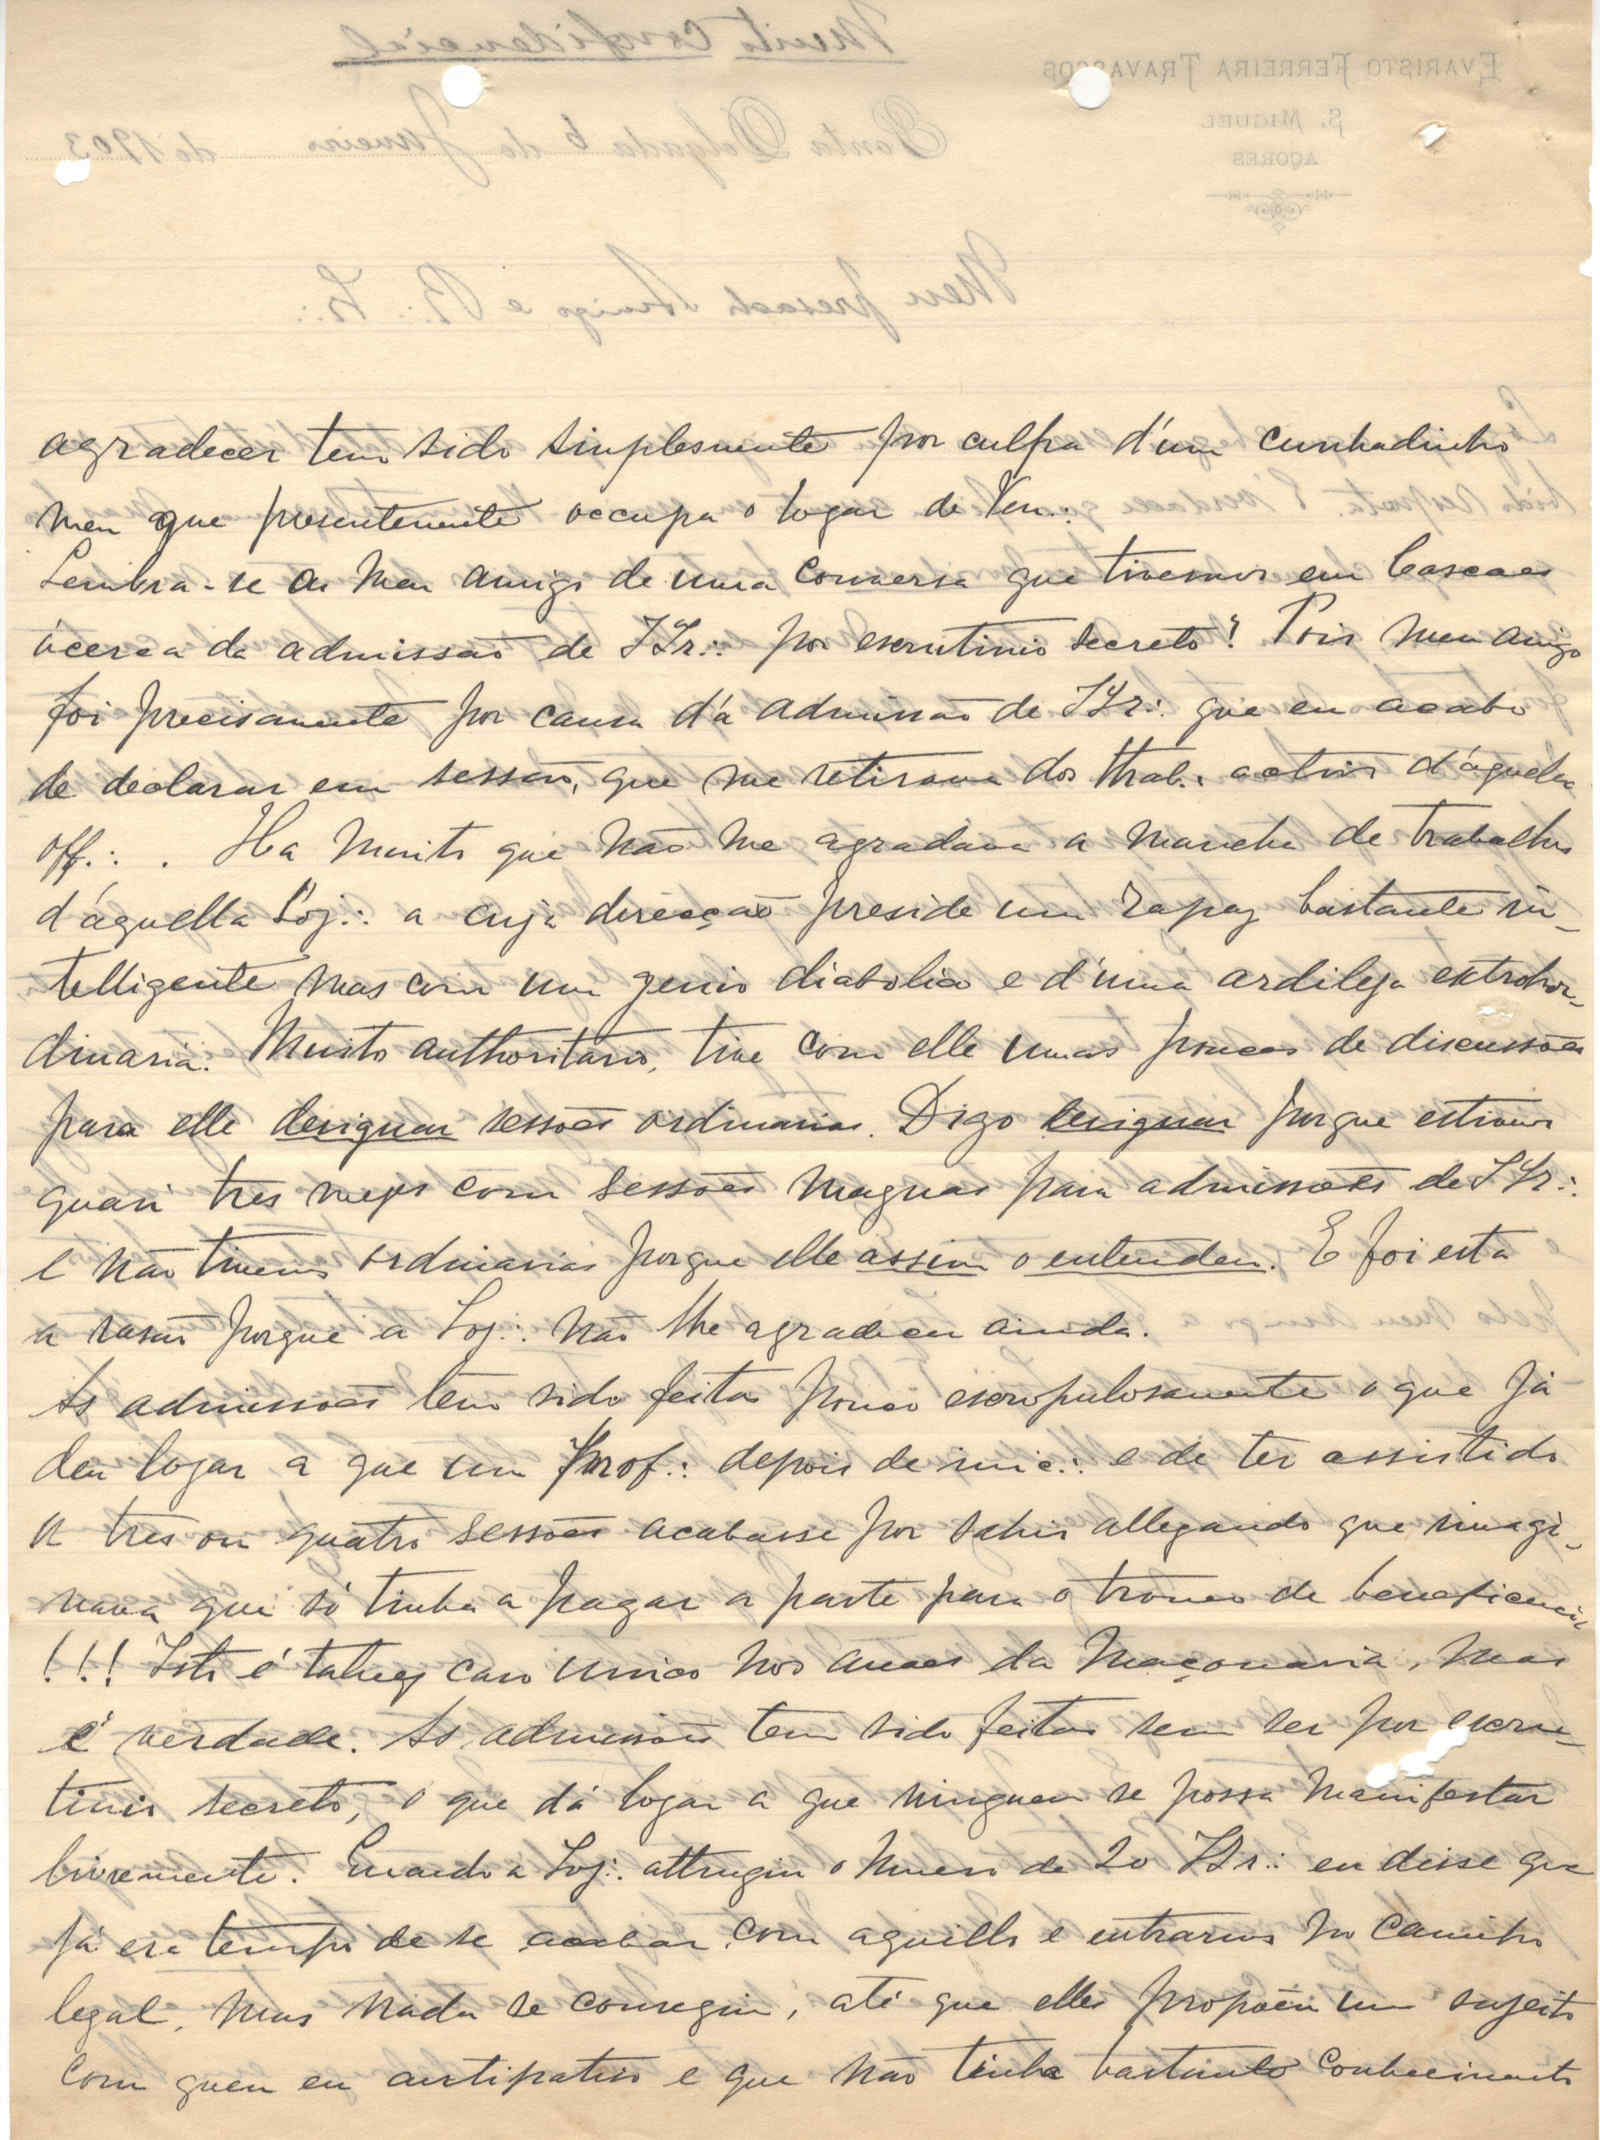 agradecer tem sido simplesmente por culpa d'um cunhadinho
meu que presentemente occupa o logar de Ven.:
Lembra-se o meu amigo de uma conversa que tivemos em Cascaes
ácerca da admissão de IIr.: por escrutinio secreto? Pois meu amigo
foi precisamente por causa d'a admissão de IIr.: que eu acabo
de declarar em sessão, que me retirava dos trab.: activos d'áquella
off.: . Ha muito que não me agradava a marcha de trabalhos
d'áquella Loj.: a cuja direcção preside um rapaz bastante in-
telligente mas com um genio diabolico e d'uma ardileza extrohor-
dinaria. Muito authoritario, tive com elle umas poucas de discussões
para elle designar sessões ordinarias. Digo designar porque estivemos
quasi tres mezes com sessões magnas para admissões de IIr.:
e não tivemos ordinarias porque elle assim o entendeu. E foi esta
a rasão porque a Loj.: não lhe agradeceu ainda.
As admissões tem sido feitas pouco escropulosamente o que já
deu logar a que um Prof.: depois de inic.: e de ter assistido
a tres ou quatro sessões acabasse por sahir allegando que imagi-
nava que só tinha a pagar a parte para o tronco de beneficencia
!!! Isto é talvez caso unico nos anaes da Maçonaria, mas
é verdade. As admissões tem sido feitas sem ser por escru-
tinio secreto, o que dá logar a que ninguem se possa manifestar
livremente. Quando a Loj.: attingiu o numero de 20 IIr.: eu disse que
já era tempo de se acabar com aquillo e entrarmos no caminho
legal, mas nada se conseguiu, até que elles propõem um sujeito
com quem eu antipatiso e que não tinha bastante conhecimento
Muito confidencial
EVARISTO FERREIRA TRAVASSOS
S. MIGUEL
AÇORES
Ponta Delgada 6 de Janeiro de 1903
Meu presado Amigo e Ir.: